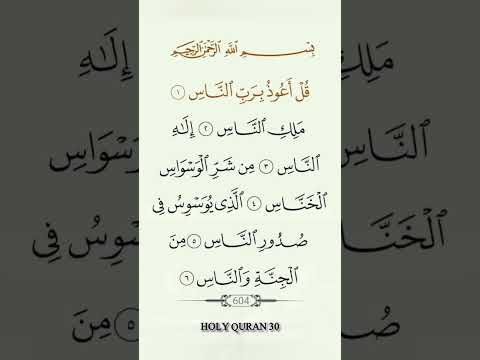 بِسْمِ ٱللَّهِ ٱلرَّحْمَٰنِ ٱلرَّحِيمِ
قُلْ أَعُوذُ بِرَبِّ ٱلنَّاسِ ١
مَلِكِ ٱلنَّاسِ ٢ إِلَٰهِ
ٱلنَّاسِ ٣ مِن شَرِّ ٱلْوَسْوَاسِ
ٱلْخَنَّاسِ ٤ ٱلَّذِى يُوَسْوِسُ فِى
صُدُورِ ٱلنَّاسِ ٥ مِنَ
ٱلْجِنَّةِ وَٱلنَّاسِ ٦
604
HOLY QURAN 30